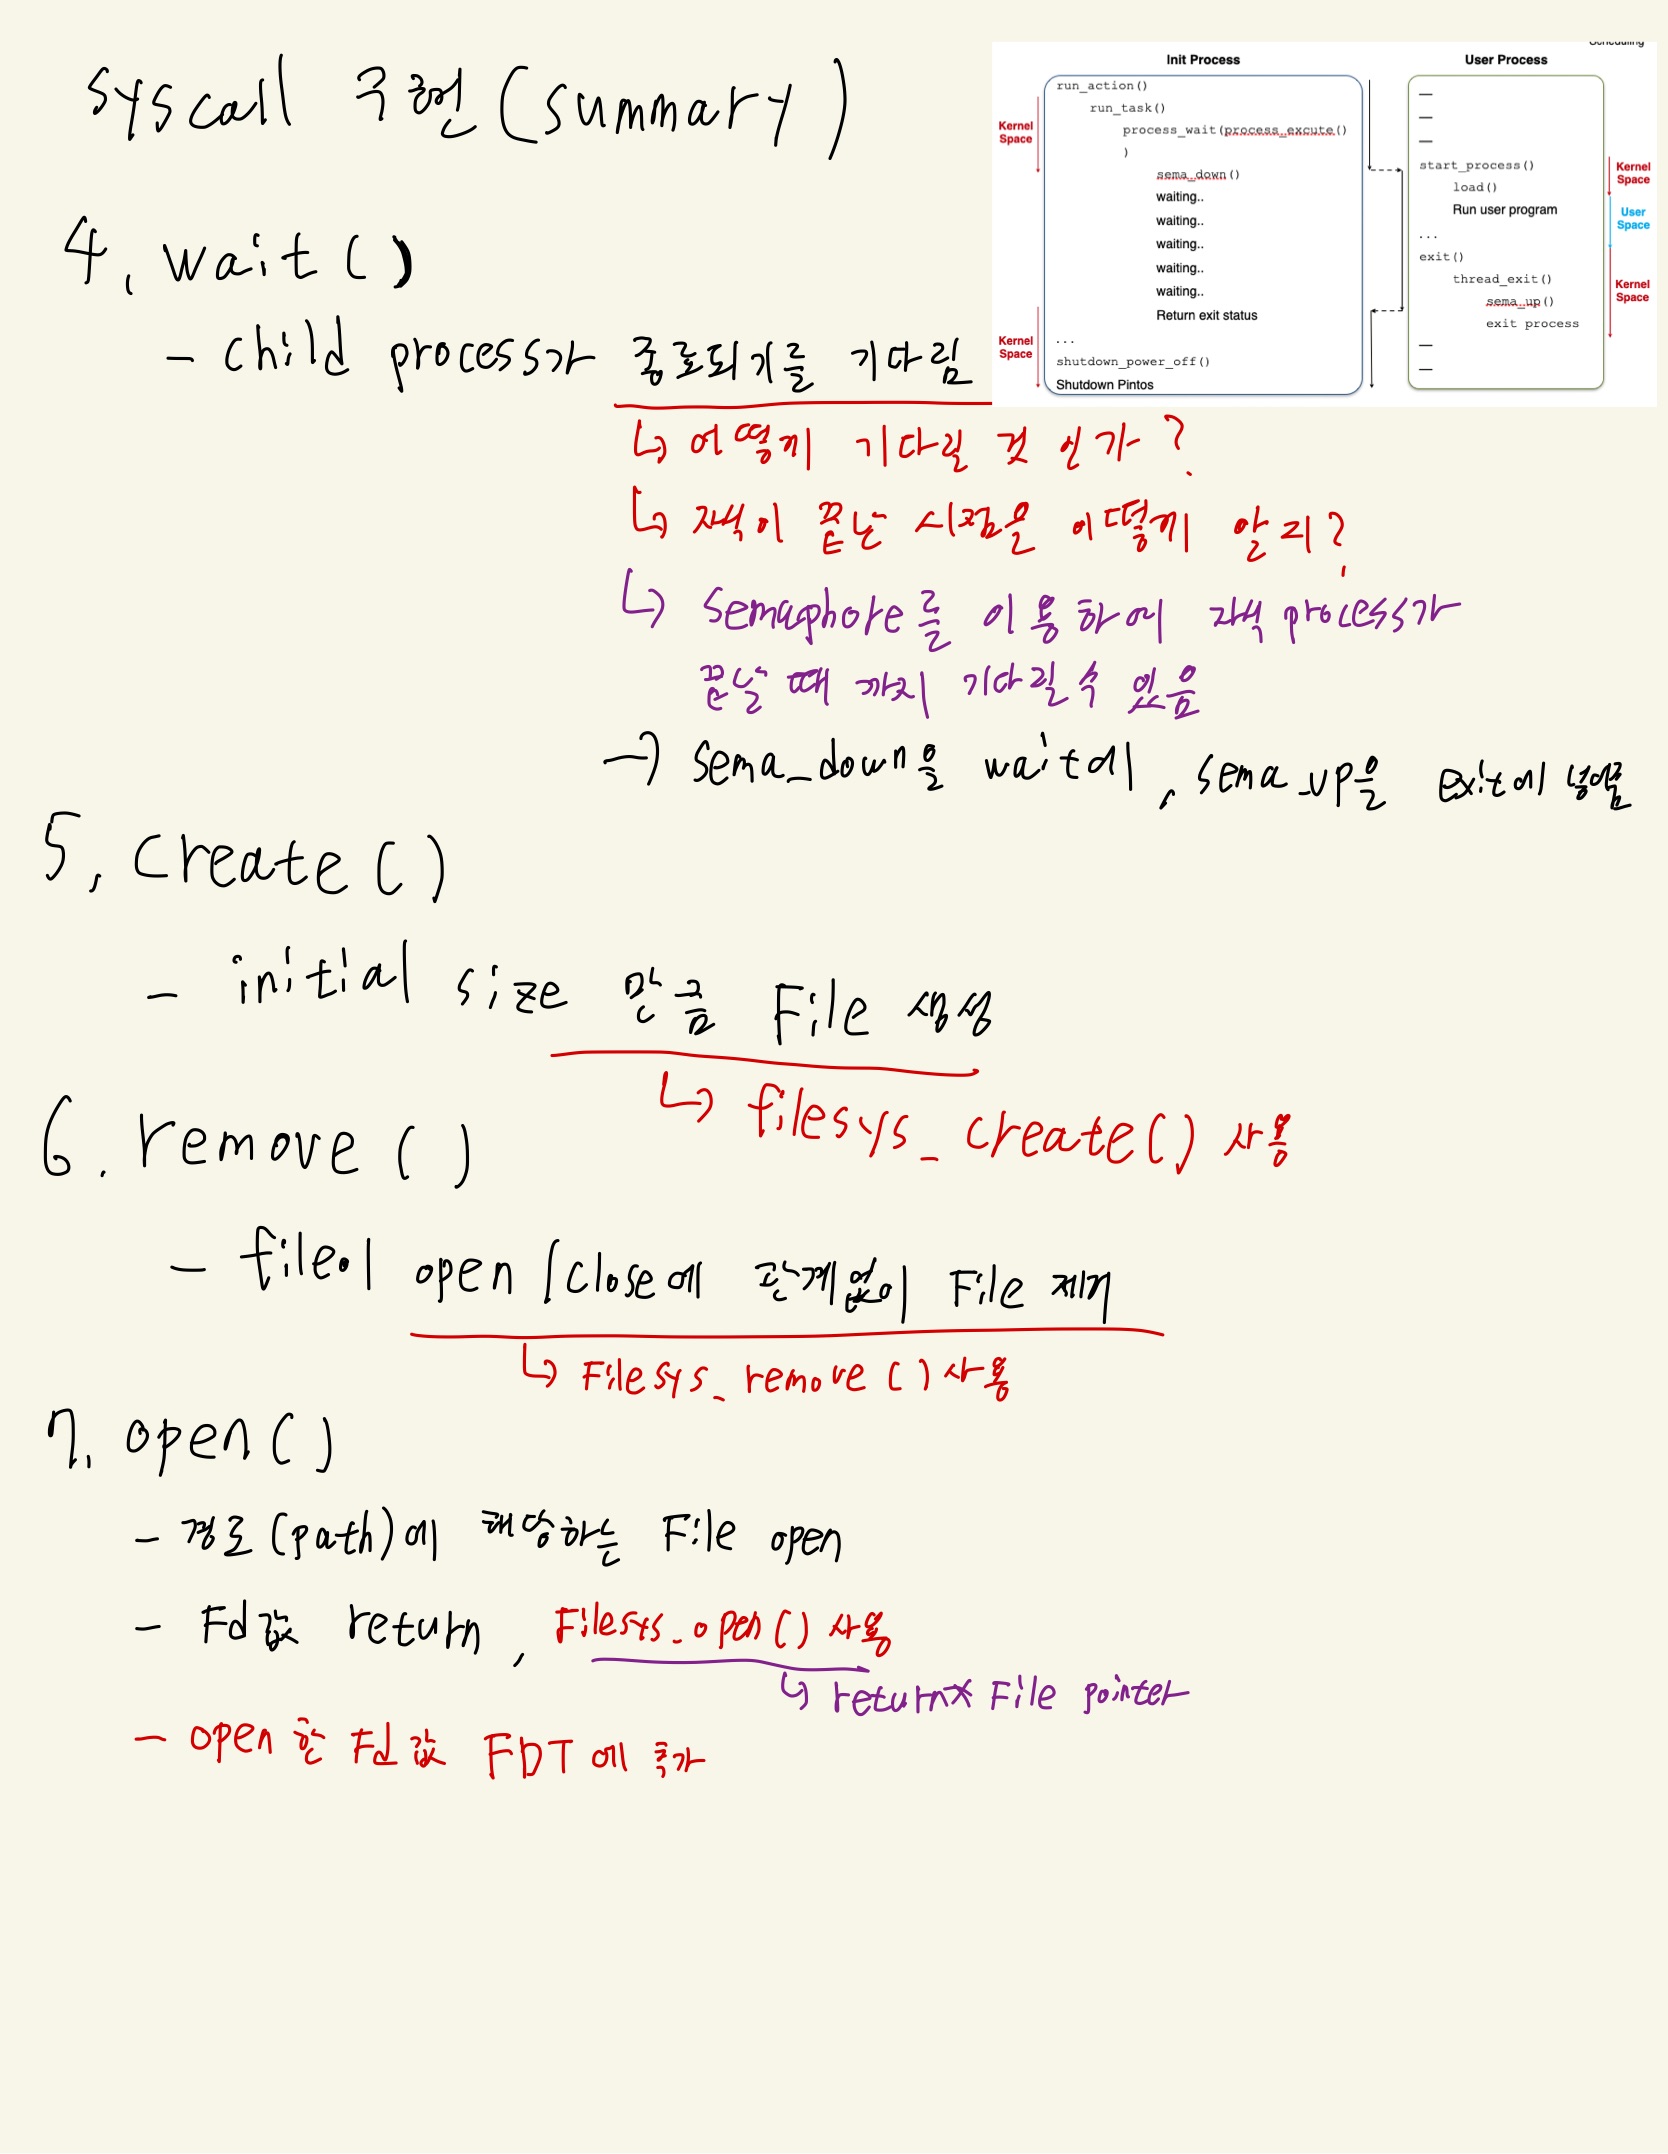 syscall 구현 (summary)
Scheduling
Init Process
run_action()
run_task()
process_wait(process_excute()
)
sema_down()
waiting..
waiting..
waiting..
waiting..
waiting..
Return exit status
...
shutdown_power_off()
Shutdown Pintos
Kernel
Space
Kernel
Space
User Process
—
—
—
start_process()
load()
Run user program
...
exit()
thread_exit()
sema_up()
exit process
—
—
Kernel
Space
User
Space
Kernel
Space
4. wait ()
- child process가 종료되기를 기다림
↳ 어떻게 기다릴 것 인가?
↳ 자식이 끝난 시점을 어떻게 알지?
↳ semaphore를 이용하여 자식 process가
끝날 때 까지 기다릴 수 있음
→ sema_down을 wait에, sema_up을 exit에 넣어줌
5. create ()
- initial size 만큼 File 생성
↳ filesys_create() 사용
6. remove ()
- file이 open/close에 관계없이 File 제거
↳ Filesys_remove () 사용
7. open()
- 경로 (path)에 해당하는 File open
- Fd값 return, Filesys_open() 사용
↳ return* File pointer
- open한 Fd값 FDT에 추가